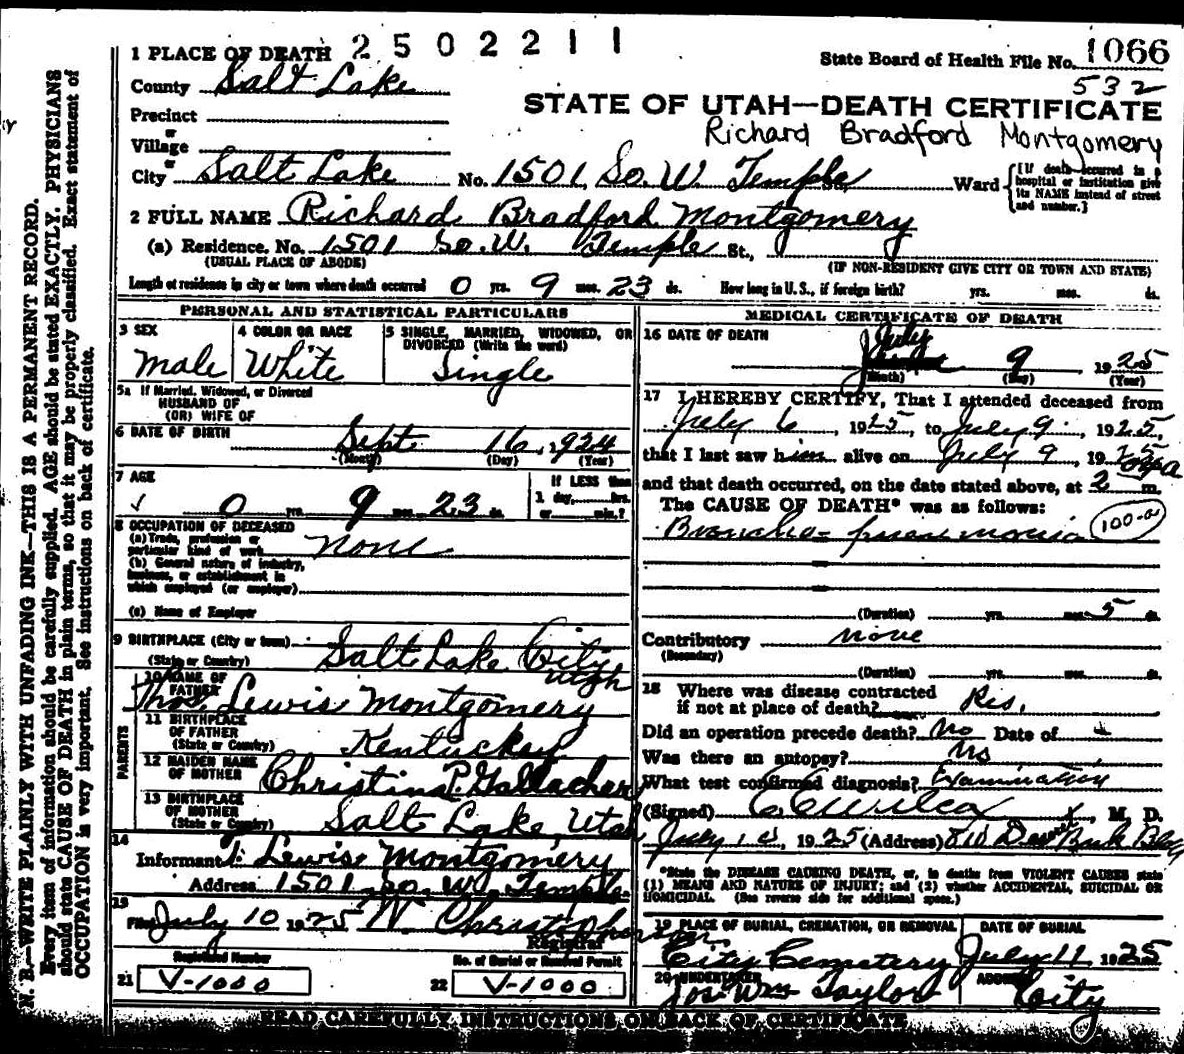 2502211
1 PLACE OF DEATH
State Board of Health File No. 1066
532
County Salt Lake
STATE OF UTAH—DEATH CERTIFICATE
Precinct
or
Richard Bradford Montgomery
Village
or
City Salt Lake No. 1501 So. W. Temple St. Ward
{If death occurred in a hospital or institution give its NAME instead of street and number.}
2 FULL NAME Richard Bradford Montgomery
(a) Residence. No. 1501 So. W. Temple St.,
(USUAL PLACE OF ABODE) (IF NON-RESIDENT GIVE CITY OR TOWN AND STATE)
Length of residence in city or town where death occurred 0 yrs. 9 mos. 23 ds. How long in U.S., if foreign birth? yrs. mos. ds.
PERSONAL AND STATISTICAL PARTICULARS
3 SEX
Male
4 COLOR OR RACE
White
5 SINGLE, MARRIED, WIDOWED, OR DIVORCED (Write the word)
Single
5a If Married, Widowed, or Divorced
HUSBAND OF
(OR) WIFE OF
6 DATE OF BIRTH
Sept 16, 1924
(Month) (Day) (Year)
7 AGE
0 yrs. 9 mos. 23 ds.
If LESS than
1 day, hrs.
or min.?
8 OCCUPATION OF DECEASED
(a) Trade, profession or
particular kind of work none
(b) General nature of industry,
business, or establishment in
which employed (or employer)
(c) Name of Employer
9 BIRTHPLACE (City or town) Salt Lake City
(State or Country) Utah
PARENTS
10 NAME OF FATHER Thos. Lewis Montgomery
11 BIRTHPLACE
OF FATHER
(State or Country) Kentucky
12 MAIDEN NAME
OF MOTHER Christina P. Gallacher
13 BIRTHPLACE
OF MOTHER
(State or Country) Salt Lake, Utah
14
Informant T. Lewis Montgomery
Address 1501 So. W. Temple
15
Filed July 10 1925 W. Christopherson
Registrar
Registered Number
21 V-1000
No. of Burial or Removal Permit
22 V-1000
MEDICAL CERTIFICATE OF DEATH
16 DATE OF DEATH
July 9 1925
(Month) (Day) (Year)
17 I HEREBY CERTIFY, That I attended deceased from
July 6, 1925, to July 9, 1925,
that I last saw him alive on July 9, 1925
and that death occurred, on the date stated above, at 2 m.
The CAUSE OF DEATH* was as follows:
Broncho-pneumonia
(Duration) yrs. mos. 5 ds.
Contributory none
(Secondary)
(Duration) yrs. mos. ds.
18 Where was disease contracted
if not at place of death? Res.
Did an operation precede death? No Date of
Was there an autopsy? No
What test confirmed diagnosis? Examination
(Signed) C C Wilcox, M. D.
July 1925 (Address) Bank Bldg
*State the DISEASE CAUSING DEATH, or, in deaths from VIOLENT CAUSES state
(1) MEANS AND NATURE OF INJURY; and (2) whether ACCIDENTAL, SUICIDAL OR
HOMICIDAL. (See reverse side for additional space.)
19 PLACE OF BURIAL, CREMATION, OR REMOVAL
City Cemetery
DATE OF BURIAL
July 11 1925
20 UNDERTAKER
Jos. Wm Taylor
ADDRESS
City
READ CAREFULLY INSTRUCTIONS ON BACK OF CERTIFICATE
N. B.—WRITE PLAINLY WITH UNFADING INK—THIS IS A PERMANENT RECORD.
Every item of information should be carefully supplied. AGE should be stated EXACTLY. PHYSICIANS
should state CAUSE OF DEATH in plain terms, so that it may be properly classified. Exact statement of
OCCUPATION is very important. See instructions on back of certificate.